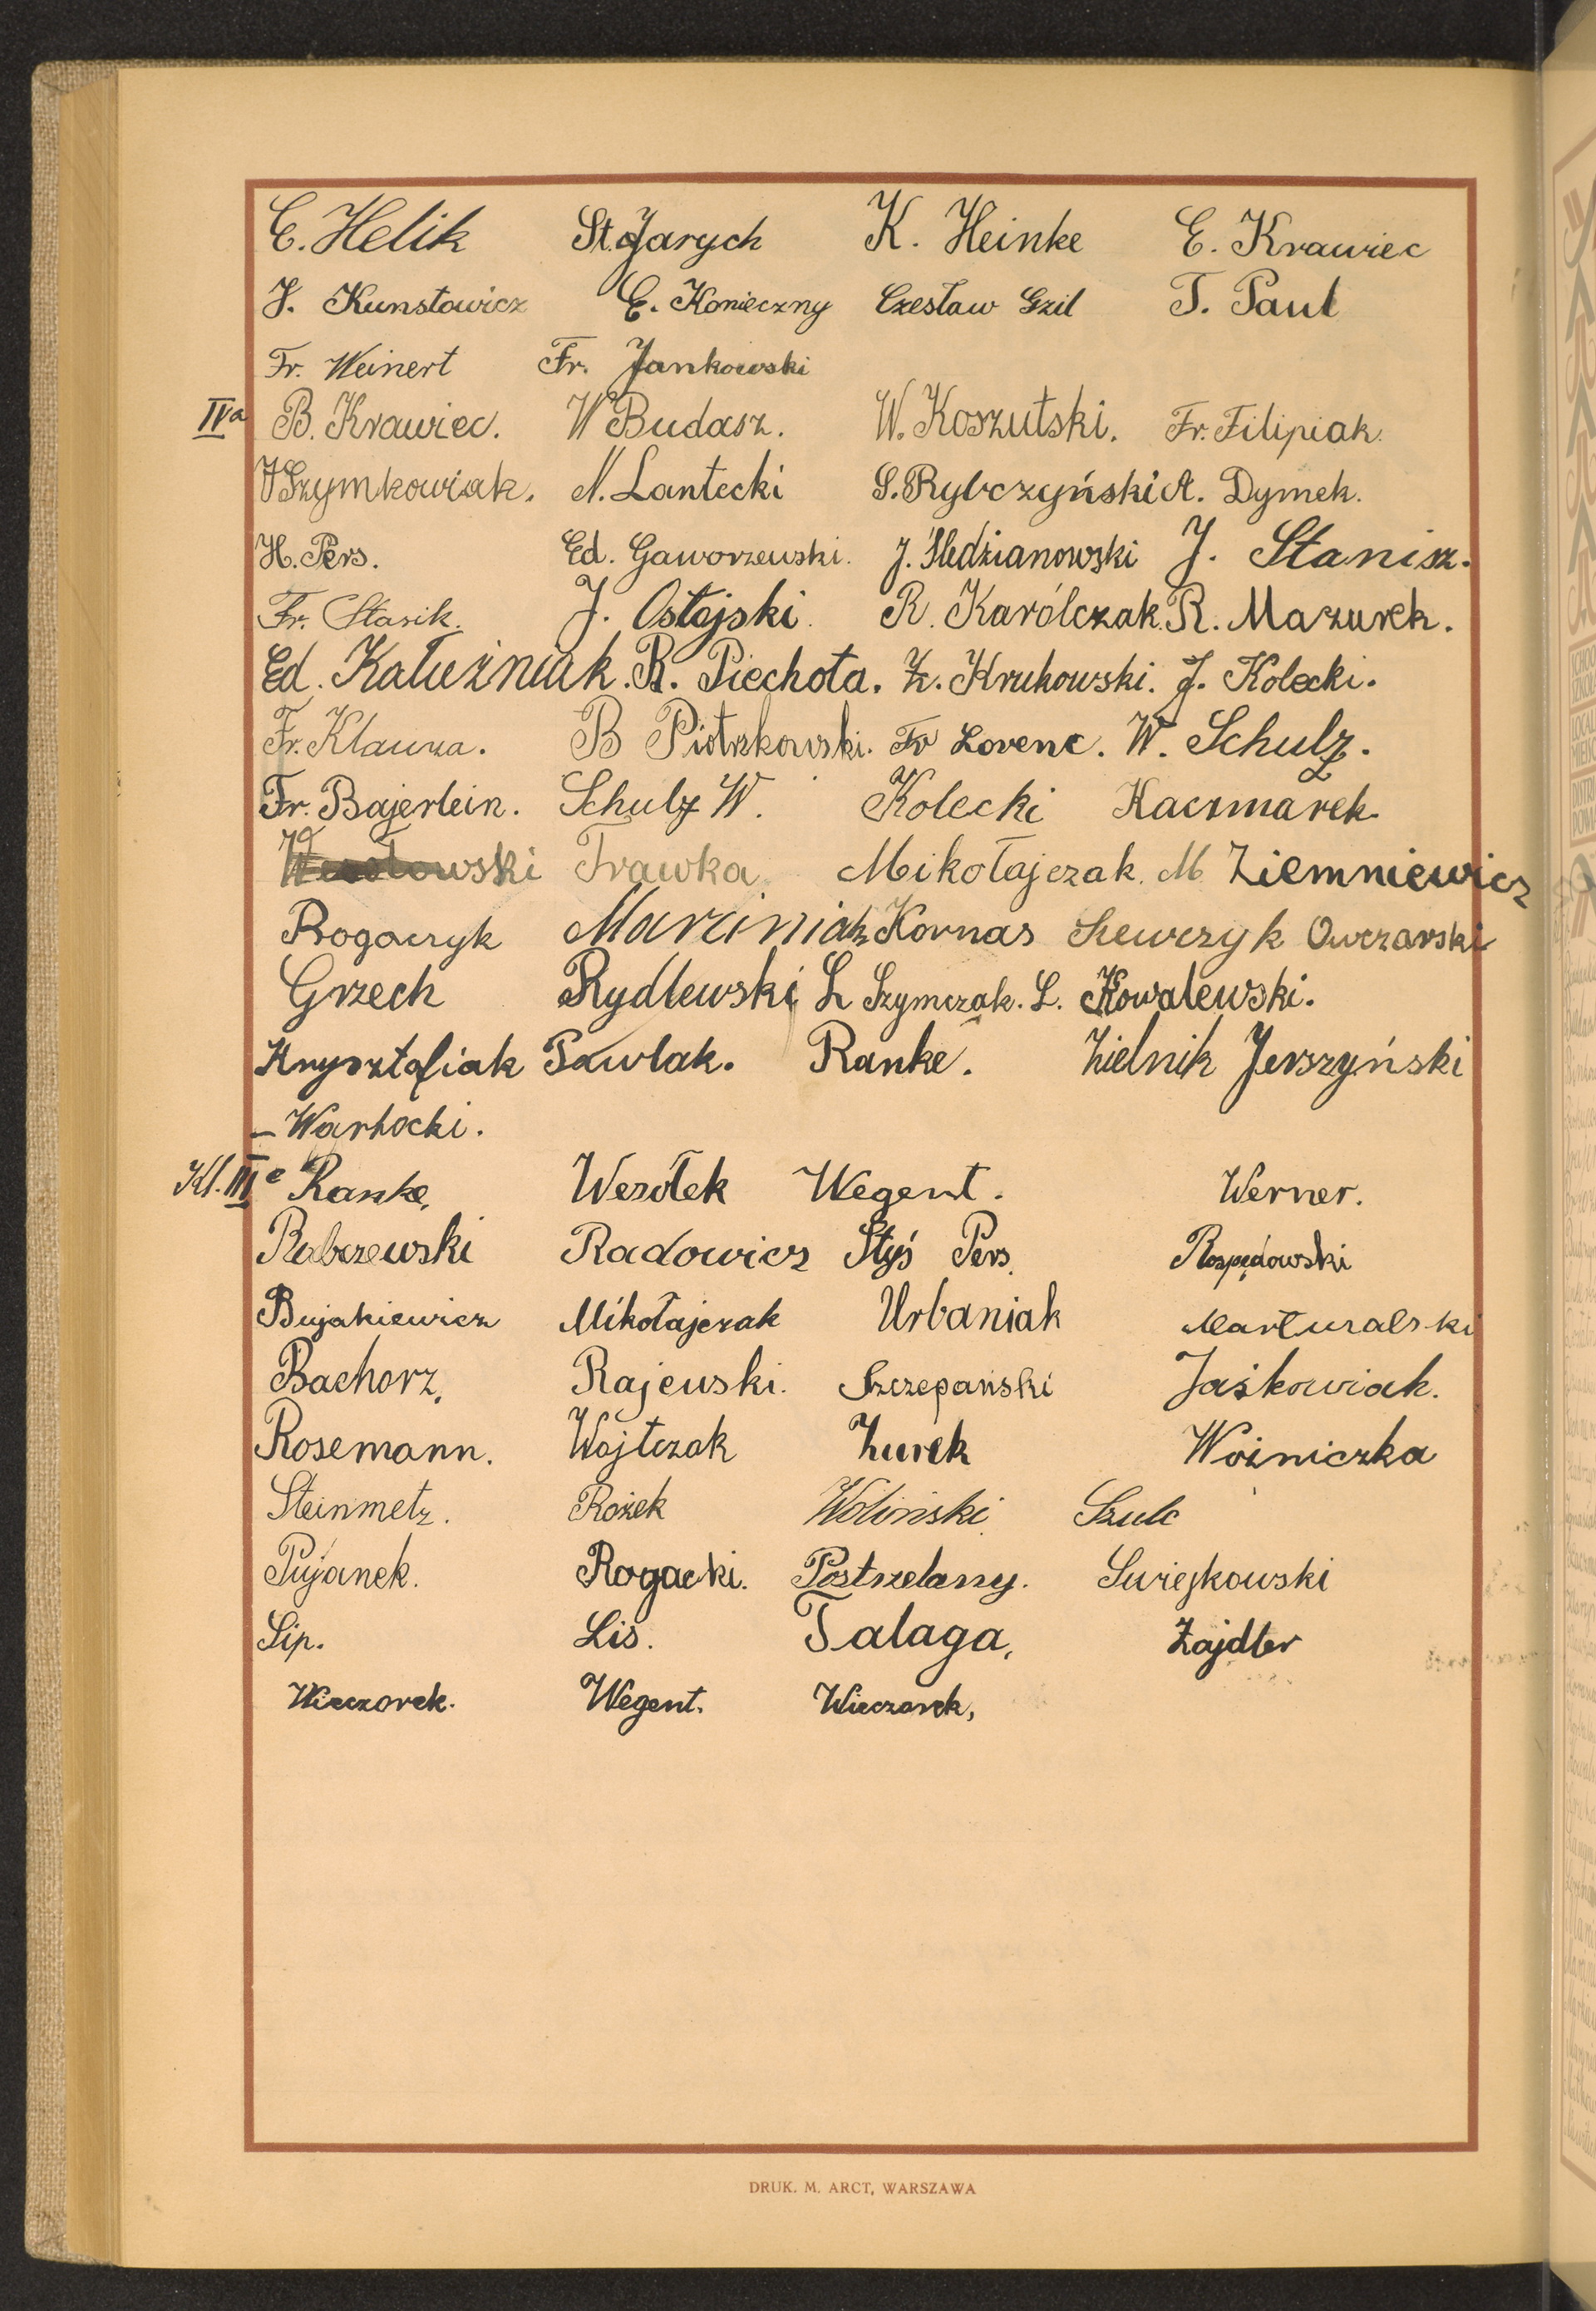 C. Helik St. Jarych K. Heinke E. Krawiec
J. Kunstowicz E. Konieczny Czesław Gzil T. Paul
Fr. Weinert Fr. Jankowski
IVa B. Krawiec. W Budasz. W. Koszutski. Fr. Filipiak.
Szymkowiak. N. Lantecki S. Rybczyński A. Dymek.
H. Pers. Ed. Gaworzewski. J. Śledzianowski J. Stanisz.
Fr. Stasik. J. Ostojski. R. Karólczak. R. Mazurek.
Ed. Kałużniak. R. Piechota. Z. Krukowski. J. Kolecki.
Fr. Klauza. B Piotrkowski. Fr Lorenc. W. Schulz.
Fr. Bajerlein. Schulz W. Kolecki Kaczmarek
Trawka Mikołajczak. M Ziemniewicz
Rogaczyk Marciniak Kornas Szewczyk Owczarski
Grzech Rydlewski L Szymczak. L. Kowalewski.
Krysztofiak Pawlak. Ranke. Zielnik Jerszyński
– Warhocki.
Kl. IIIe Ranke. Wezółek Wegent. Werner.
Rabczewski Radowicz Styś Pers. Rozpędowski
Bujakiewicz Mikołajczak Urbaniak Marturalski
Bachorz, Rajewski. Szczepański Jaśkowiak.
Rosemann. Wojtczak Żurek Woźniczka
Steinmetz. Rożek Woliński Szulc
Pujanek. Rogacki. Postrzelany. Swiejkowski
Lip. Lis. Talaga, Zajdler
Wieczorek. Wegent. Wieczorek,
DRUK. M. ARCT, WARSZAWA